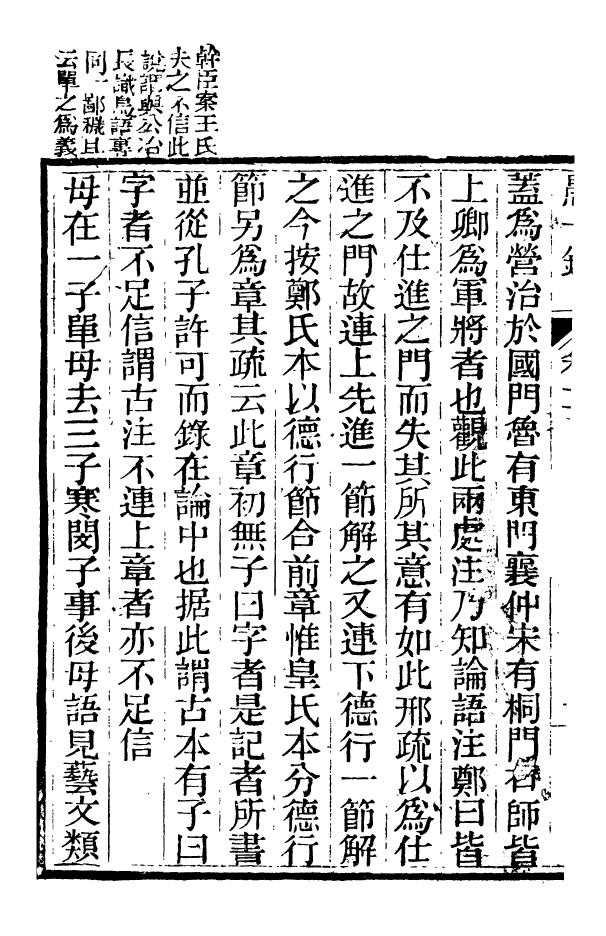 幹臣案王氏
夫之不信此
說謂與公冶
長識鳥語事
同一鄙穢且
云單之爲義
愚一錄
蓋爲營治於國門魯有東門襄仲宋有桐門右師皆
上卿爲軍將者也觀此兩處注乃知論語注鄭曰皆
不及仕進之門而失其所其意有如此邢疏以爲仕
進之門故連上先進一節解之又連下德行一節解
之今按鄭氏本以德行節合前章惟皇氏本分德行
節另爲章其疏云此章初無子曰字者是記者所書
並從孔子許可而錄在論中也据此謂古本有子曰
字者不足信謂古注不連上章者亦不足信
母在一子單母去三子寒閔子事後母語見藝文類